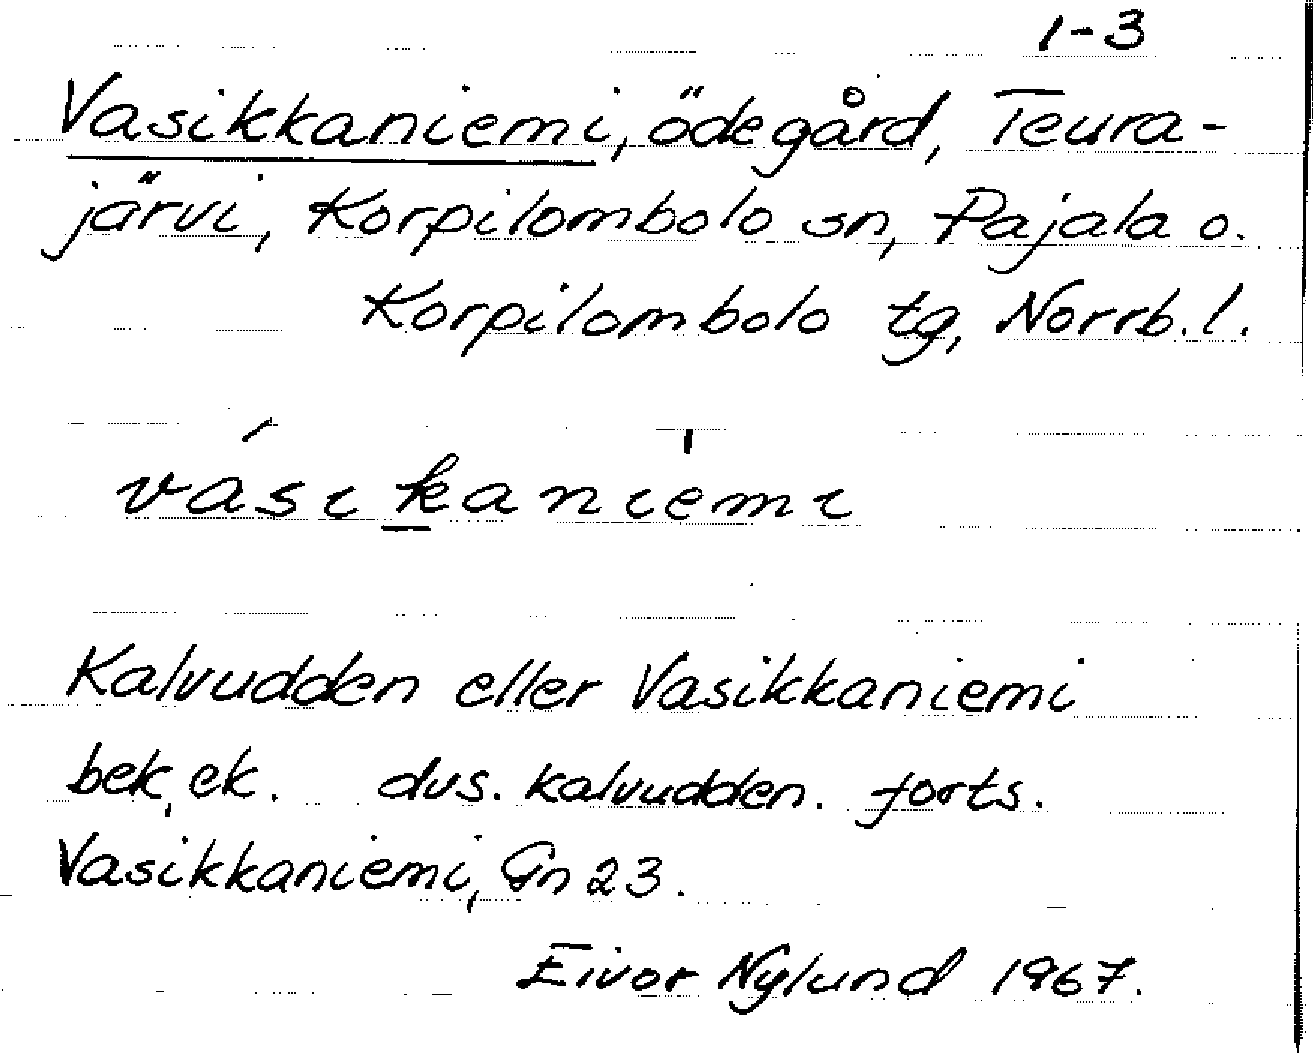 1-3
Vasikkaniemi, ödegård, Teura-
järvi, Korpilombolo sn, Pajala o.
Korpilombolo tg, Norrb. l.
vásikaniemi
Kalvudden eller Vasikkaniemi
bek, ek. dvs. kalvudden. forts.
Vasikkaniemi, Gn 23.
Eivor Nylund 1967.